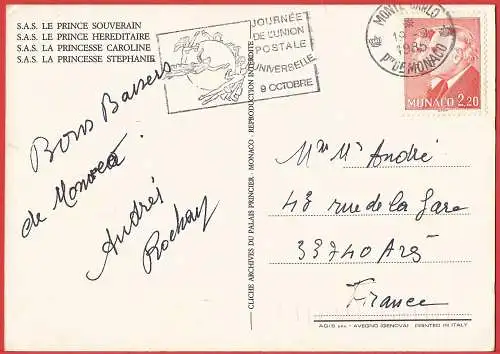 S.A.S. LE PRINCE SOUVERAIN
S.A.S. LE PRINCE HEREDITAIRE
S.A.S. LA PRINCESSE CAROLINE
S.A.S. LA PRINCESSE STEPHANIE
JOURNÉE
DE L'UNION
POSTALE
UNIVERSELLE
9 OCTOBRE
MONTE-CARLO
1985
PTE DE MONACO
MONACO 2,20
Bons Baisers
de Monaco
André
CLICHE ARCHIVES DU PALAIS PRINCIER - MONACO - REPRODUCTION INTERDITE
André
43 rue de la Gare
33740 Arès
France
AGIS s.n.c. - AVEGNO (GENOVA) PRINTED IN ITALY